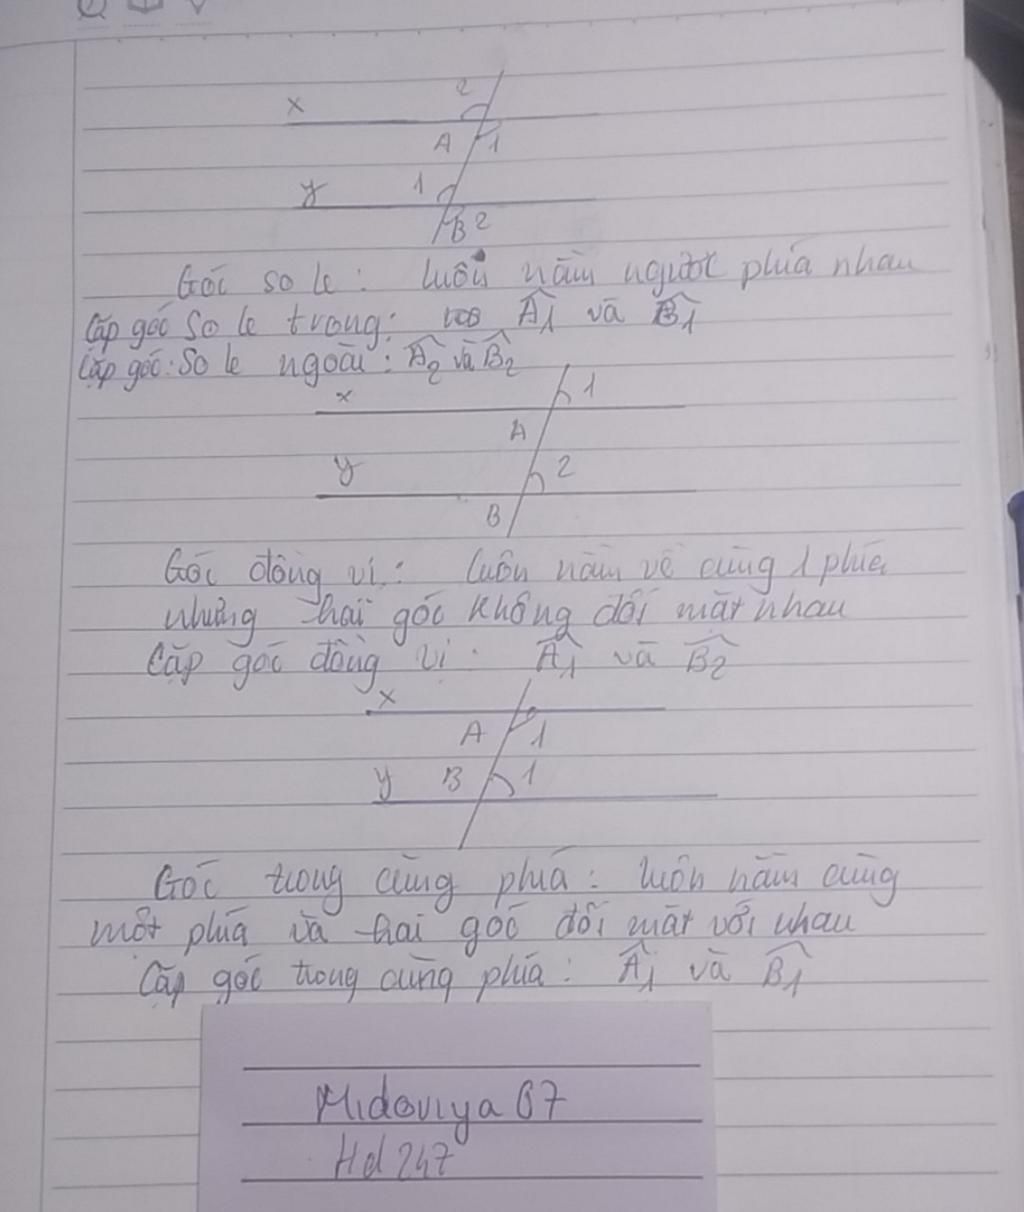 2
x
A 1
y 1
B 2
Góc so le: luôn nằm ngược phía nhau
Cặp góc so le trong: Â1 và B̂1
Cặp góc: So le ngoài: Â2 và B̂2
x 1
A
y 2
B
Góc đồng vị: luôn nằm về cùng 1 phía
nhưng hai góc không đối mặt nhau
Cặp góc đồng vị: Â1 và B̂2
x
A 1
y B 1
Góc trong cùng phía: luôn nằm cùng
một phía và hai góc đối mặt với nhau
Cặp góc trong cùng phía: Â1 và B̂1
Midoviya 67
Hd 247